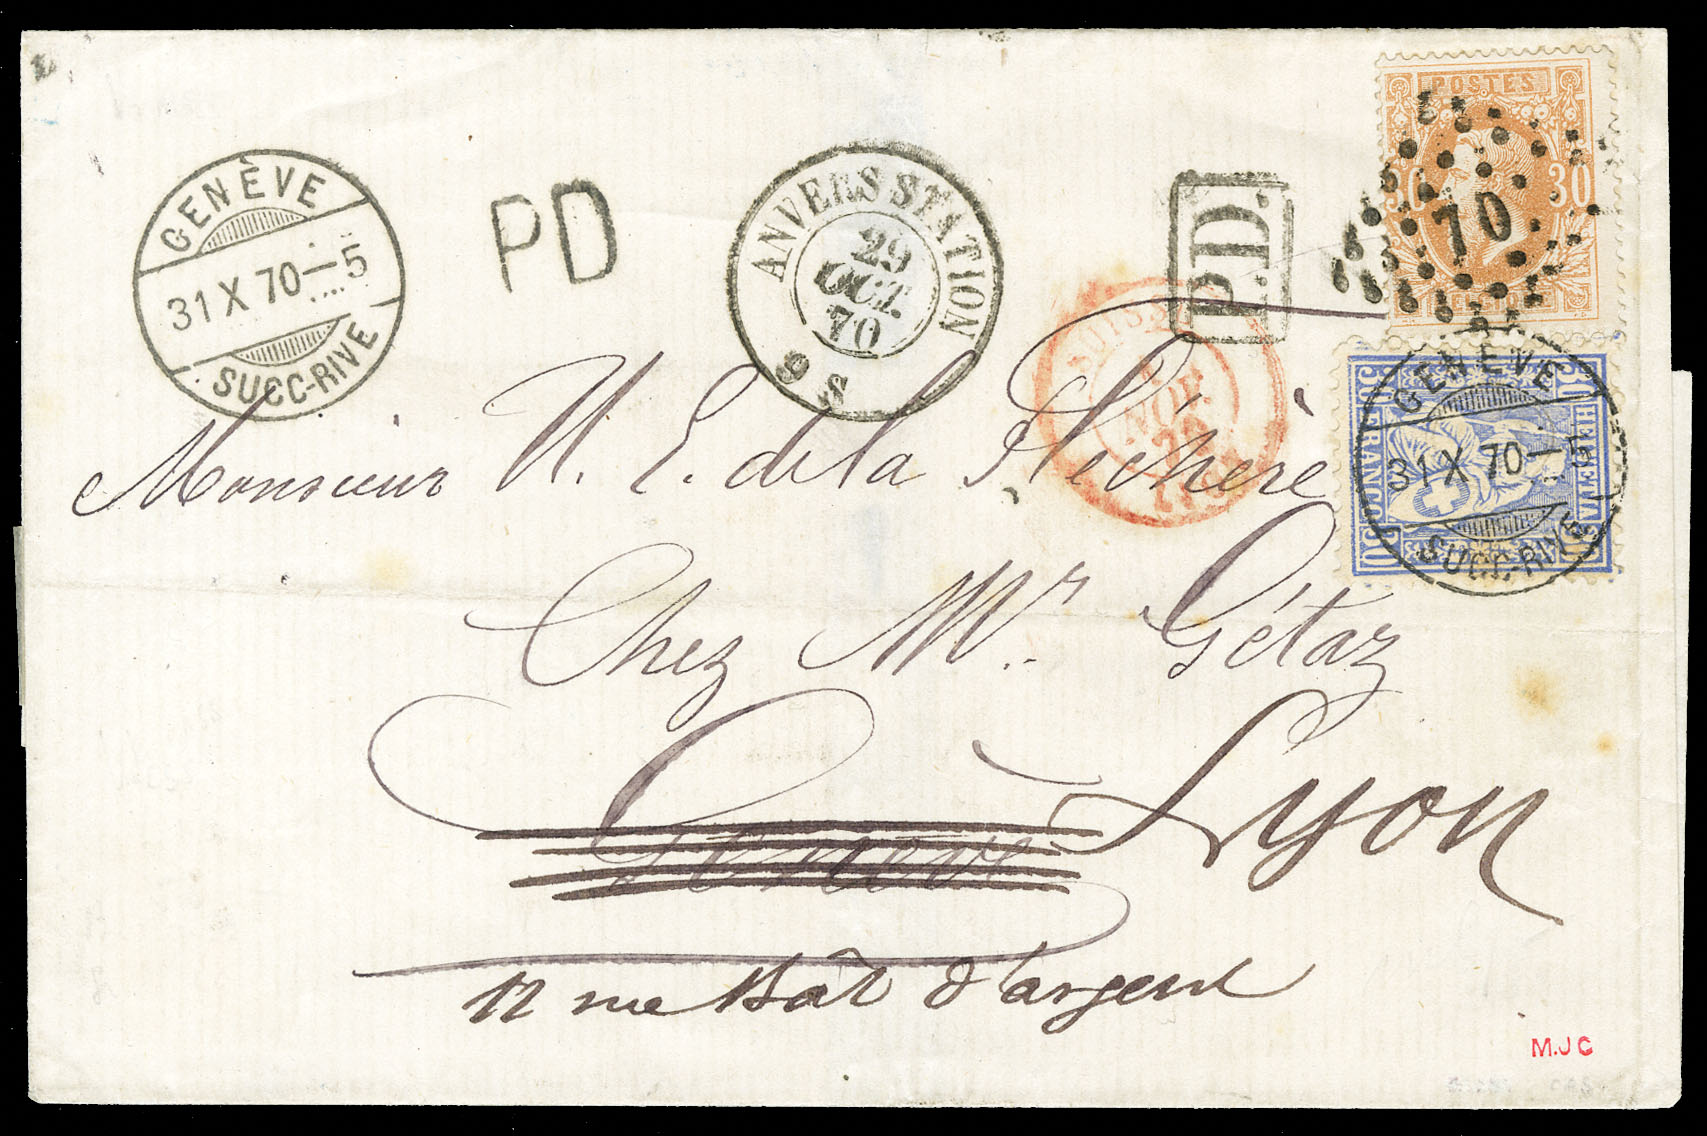 POSTES
30 30
70
BELGIQUE
GENÈVE
31 X 70–5
SUCC-RIVE
PD
ANVERS STATION
29
OCT.
70
6 S
P.D.
SUISSE
1
NOV.
70
GENÈVE
31 X 70–5
SUCC-RIVE
HELVETIA
FRANCO
30 30
Monsieur U. E. de la Fléchère
Chez Mr. Gétaz
Genève Lyon
12 rue Bât d'argent
M.J C